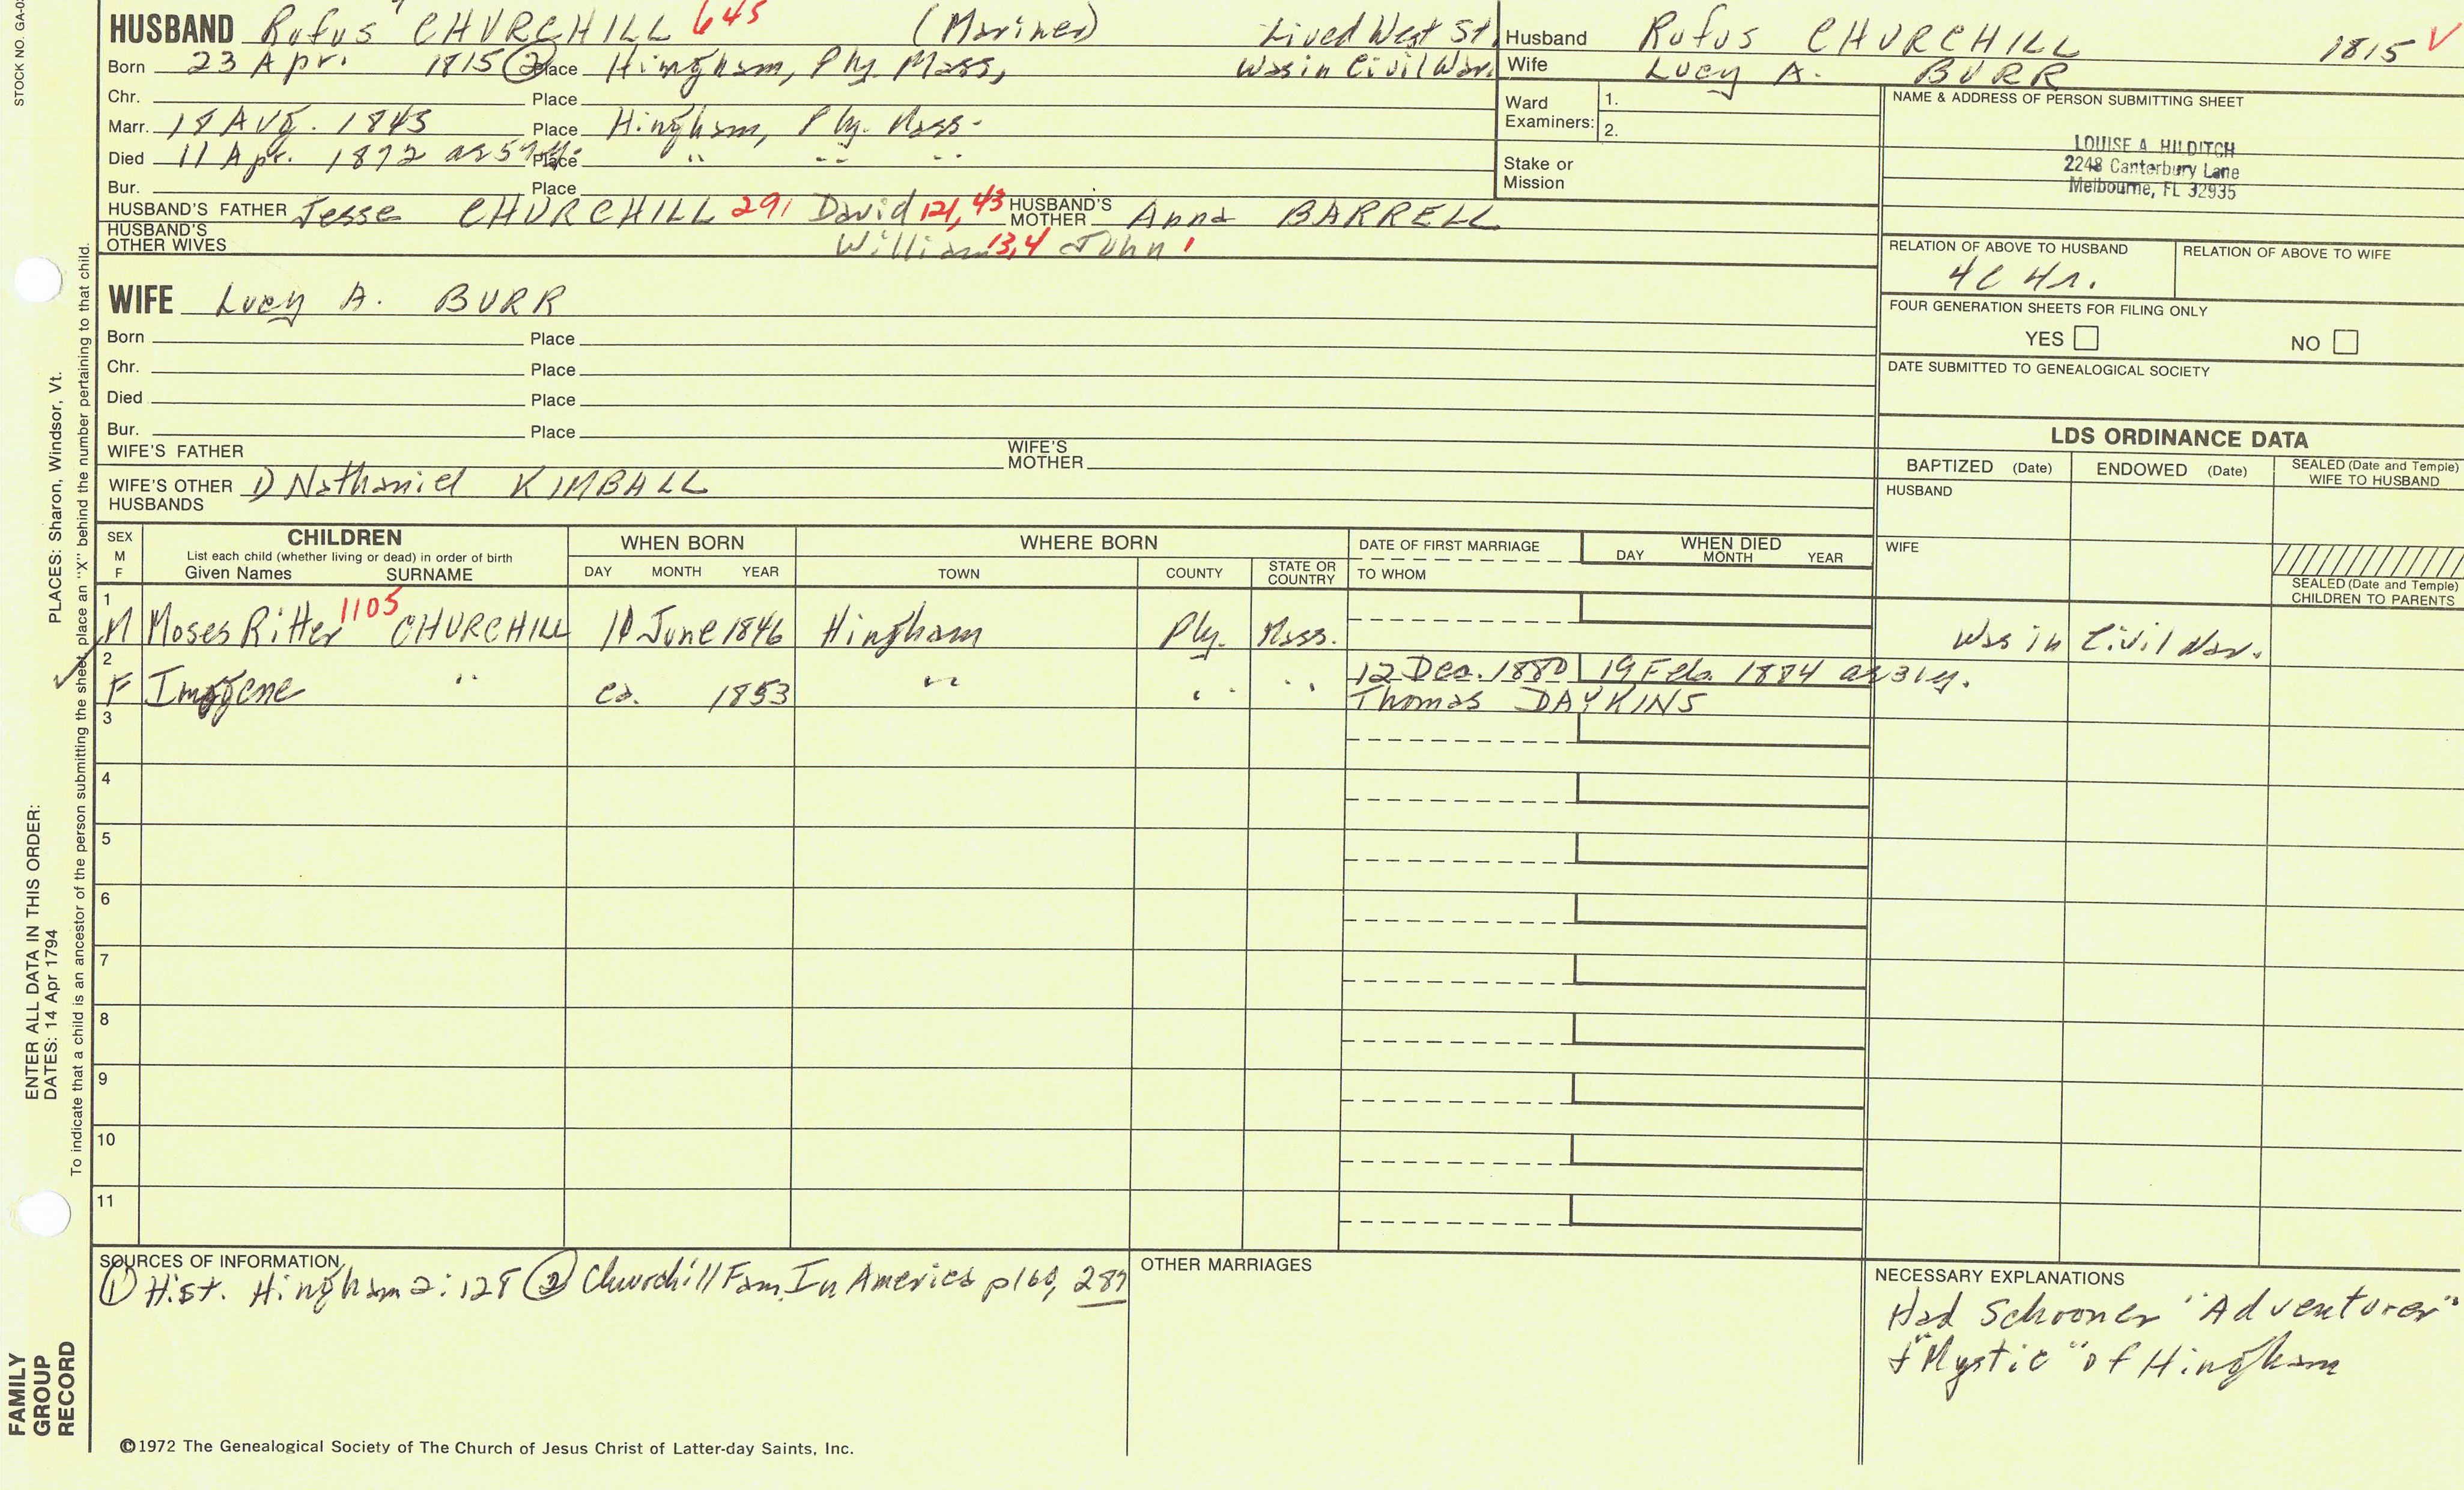 STOCK NO. GA-0
HUSBAND Rufus CHURCHILL 645 (Mariner) Lived West St.
Born 23 Apr. 1815 ② Place Hingham, Ply. Mass, Was in Civil War.
Chr. Place
Marr. 18 Aug. 1845 Place Hingham, Ply. Mass.
Died 11 Apr. 1872 ae 57 y. Place " " "
Bur. Place
HUSBAND'S FATHER Jesse CHURCHILL 291 David 121, 43 HUSBAND'S MOTHER Anna BARRELL
HUSBAND'S OTHER WIVES William 13,4 John 1
WIFE Lucy A. BURR
Born Place
Chr. Place
Died Place
Bur. Place
WIFE'S FATHER WIFE'S MOTHER
WIFE'S OTHER HUSBANDS 1) Nathaniel KIMBALL
Husband Rufus CHURCHILL 1815 V
Wife Lucy A. BURR
Ward Examiners: 1.
2.
Stake or Mission
NAME & ADDRESS OF PERSON SUBMITTING SHEET
LOUISE A HILDITCH
2248 Canterbury Lane
Melbourne, FL 32935
RELATION OF ABOVE TO HUSBAND RELATION OF ABOVE TO WIFE
4C 4r.
FOUR GENERATION SHEETS FOR FILING ONLY
YES NO
DATE SUBMITTED TO GENEALOGICAL SOCIETY
LDS ORDINANCE DATA
BAPTIZED (Date) ENDOWED (Date) SEALED (Date and Temple) WIFE TO HUSBAND
HUSBAND
WIFE
SEALED (Date and Temple) CHILDREN TO PARENTS
SEX M F CHILDREN WHEN BORN WHERE BORN DATE OF FIRST MARRIAGE WHEN DIED
List each child (whether living or dead) in order of birth
Given Names SURNAME DAY MONTH YEAR TOWN COUNTY STATE OR COUNTRY TO WHOM DAY MONTH YEAR
1
M Moses Ritter 1105 CHURCHILL 11 June 1846 Hingham Ply. Mass. Was in Civil War.
2 12 Dec. 1880 19 Feb. 1884 ae 31 y.
F Imogene " ca. 1853 " " " Thomas DAYKINS
3
4
5
6
7
8
9
10
11
SOURCES OF INFORMATION
① Hist. Hingham 2:128 ② Churchill Fam. In America p160, 287
OTHER MARRIAGES
NECESSARY EXPLANATIONS
Had Schooner "Adventurer"
+ "Mystic" of Hingham
©1972 The Genealogical Society of The Church of Jesus Christ of Latter-day Saints, Inc.
FAMILY
GROUP
RECORD
ENTER ALL DATA IN THIS ORDER:
DATES: 14 Apr 1794 PLACES: Sharon, Windsor, Vt.
To indicate that a child is an ancestor of the person submitting the sheet, place an "X" behind the number pertaining to that child.